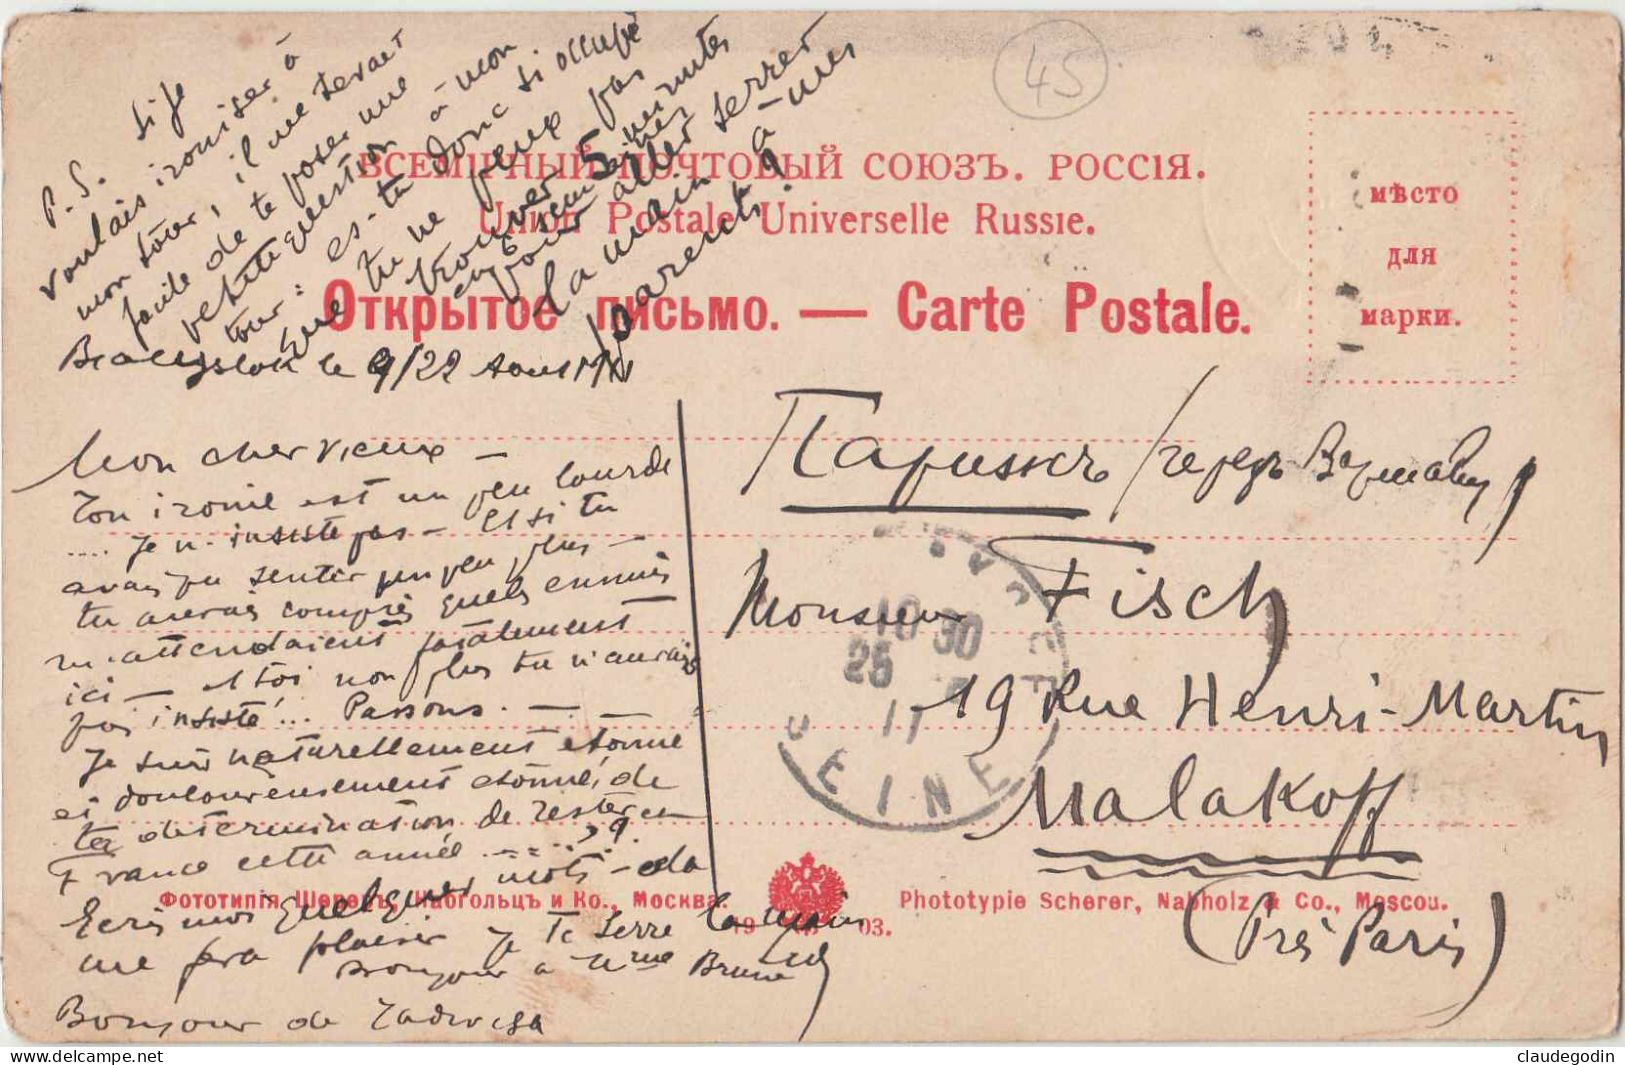 P.S. Si je
voulais ironiser à
mon tour, il me serait
facile de te poser une
petite question à mon
tour: es-tu donc si occupé
que tu ne peux pas
trouver 5 minutes
en 6 semaines
pour aller serrer
la main à mes
parents?
45
ВСЕМІРНЫЙ ПОЧТОВЫЙ СОЮЗЪ. РОССІЯ.
Union Postale Universelle Russie.
Открытое письмо. — Carte Postale.
МѢСТО
ДЛЯ
МАРКИ.
le 9/22 Aout
Mon cher vieux —
Ton ironie est un peu lourde
.... je n'insiste pas — Et si tu
avais pu sentir un peu plus —
tu aurais compris quels ennuis
m'attendaient fatalement
ici — et toi non plus tu n'aurais
pas insisté!... Passons. — . —
Je suis naturellement étonné
et douloureusement étonné, de
ta détermination de rester en
France cette année ......?
Ecris moi quelques mots — cela
me fera plaisir je te serre la main
Bonjour à Mme Brune
Bonjour de
Парижъ / черезъ Варшаву /
Monsieur Fisch
19 Rue Henri-Martin
Malakoff
(Près Paris)
10 30
25
11
SEINE
Фототипія Шереръ, Набгольцъ и Ко., Москва.
1903.
Phototypie Scherer, Nabholz & Co., Moscou.
26/05/2024
claudegodin